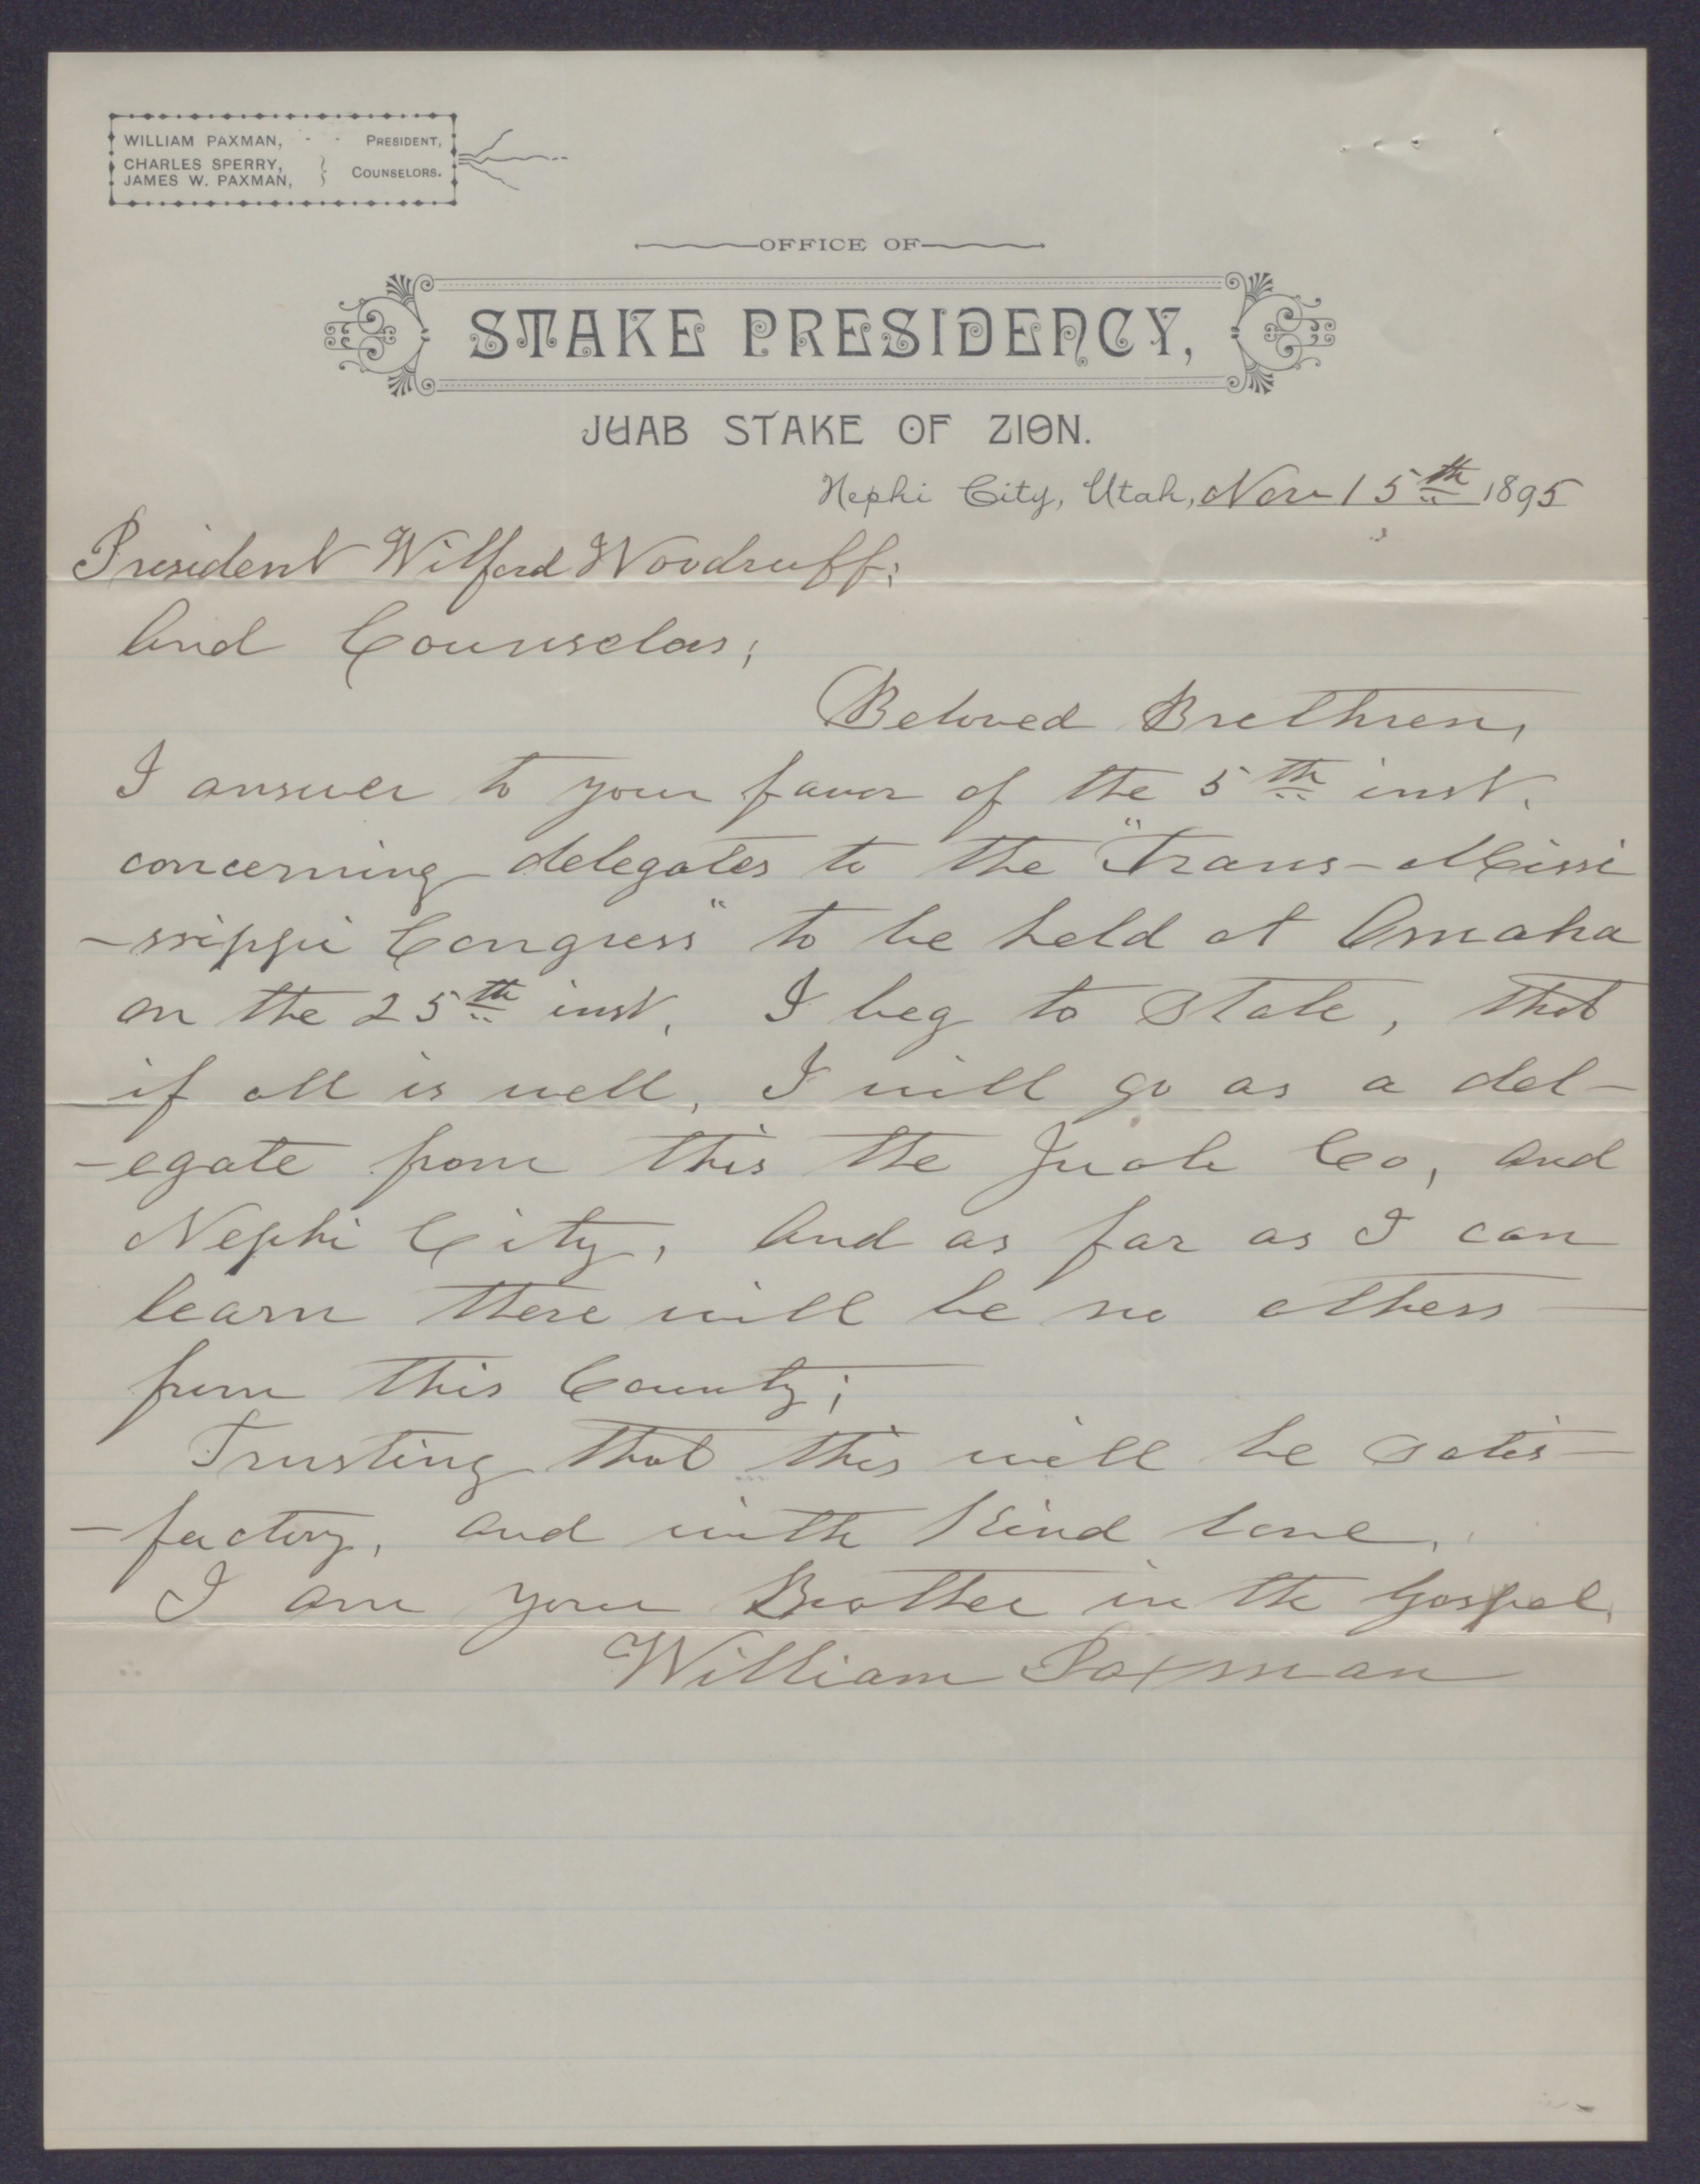 WILLIAM PAXMAN, - - PRESIDENT,
CHARLES SPERRY,
JAMES W. PAXMAN, } COUNSELORS.
OFFICE OF
STAKE PRESIDENCY,
JUAB STAKE OF ZION.
Nephi City, Utah, Nov 15th 1895
President Wilford Woodruff;
And Counselors;
Beloved Brethren,
I answer to your favor of the 5th inst.
concerning delegates to the "Trans-Missi
-ssippi Congress" to be held at Omaha
on the 25th inst. I beg to State, that
if all is well, I will go as a del-
-egate from this the Juab Co, and
Nephi City, And as far as I can
learn there will be no others
from this County;
Trusting that this will be satis-
-factory, and with Kind love,
I am your Brother in the Gospel,
William Paxman